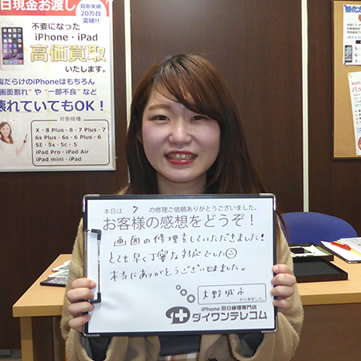 即日現金お渡し
買取実績
20万台
突破!!
不要になった
iPhone・iPad
高価買取
いたします。
傷だらけのiPhoneはもちろん
"画面割れ" や "一部不良" など
壊れていてもOK!
対象機種
X・8 Plus・8・7 Plus・7
6s Plus・6s・6 Plus・6
SE・5s・5c・5
iPad Pro・iPad Air
iPad mini・iPad
本日は 7 の修理ご依頼ありがとうございました。
お客様の感想をどうぞ!
画面の修理をしていただきました!
とても早く丁寧な対応でした
本当にありがとうございました。
大野城市
から来ました。
iPhone 即日修理専門店
ダイワンテレコム